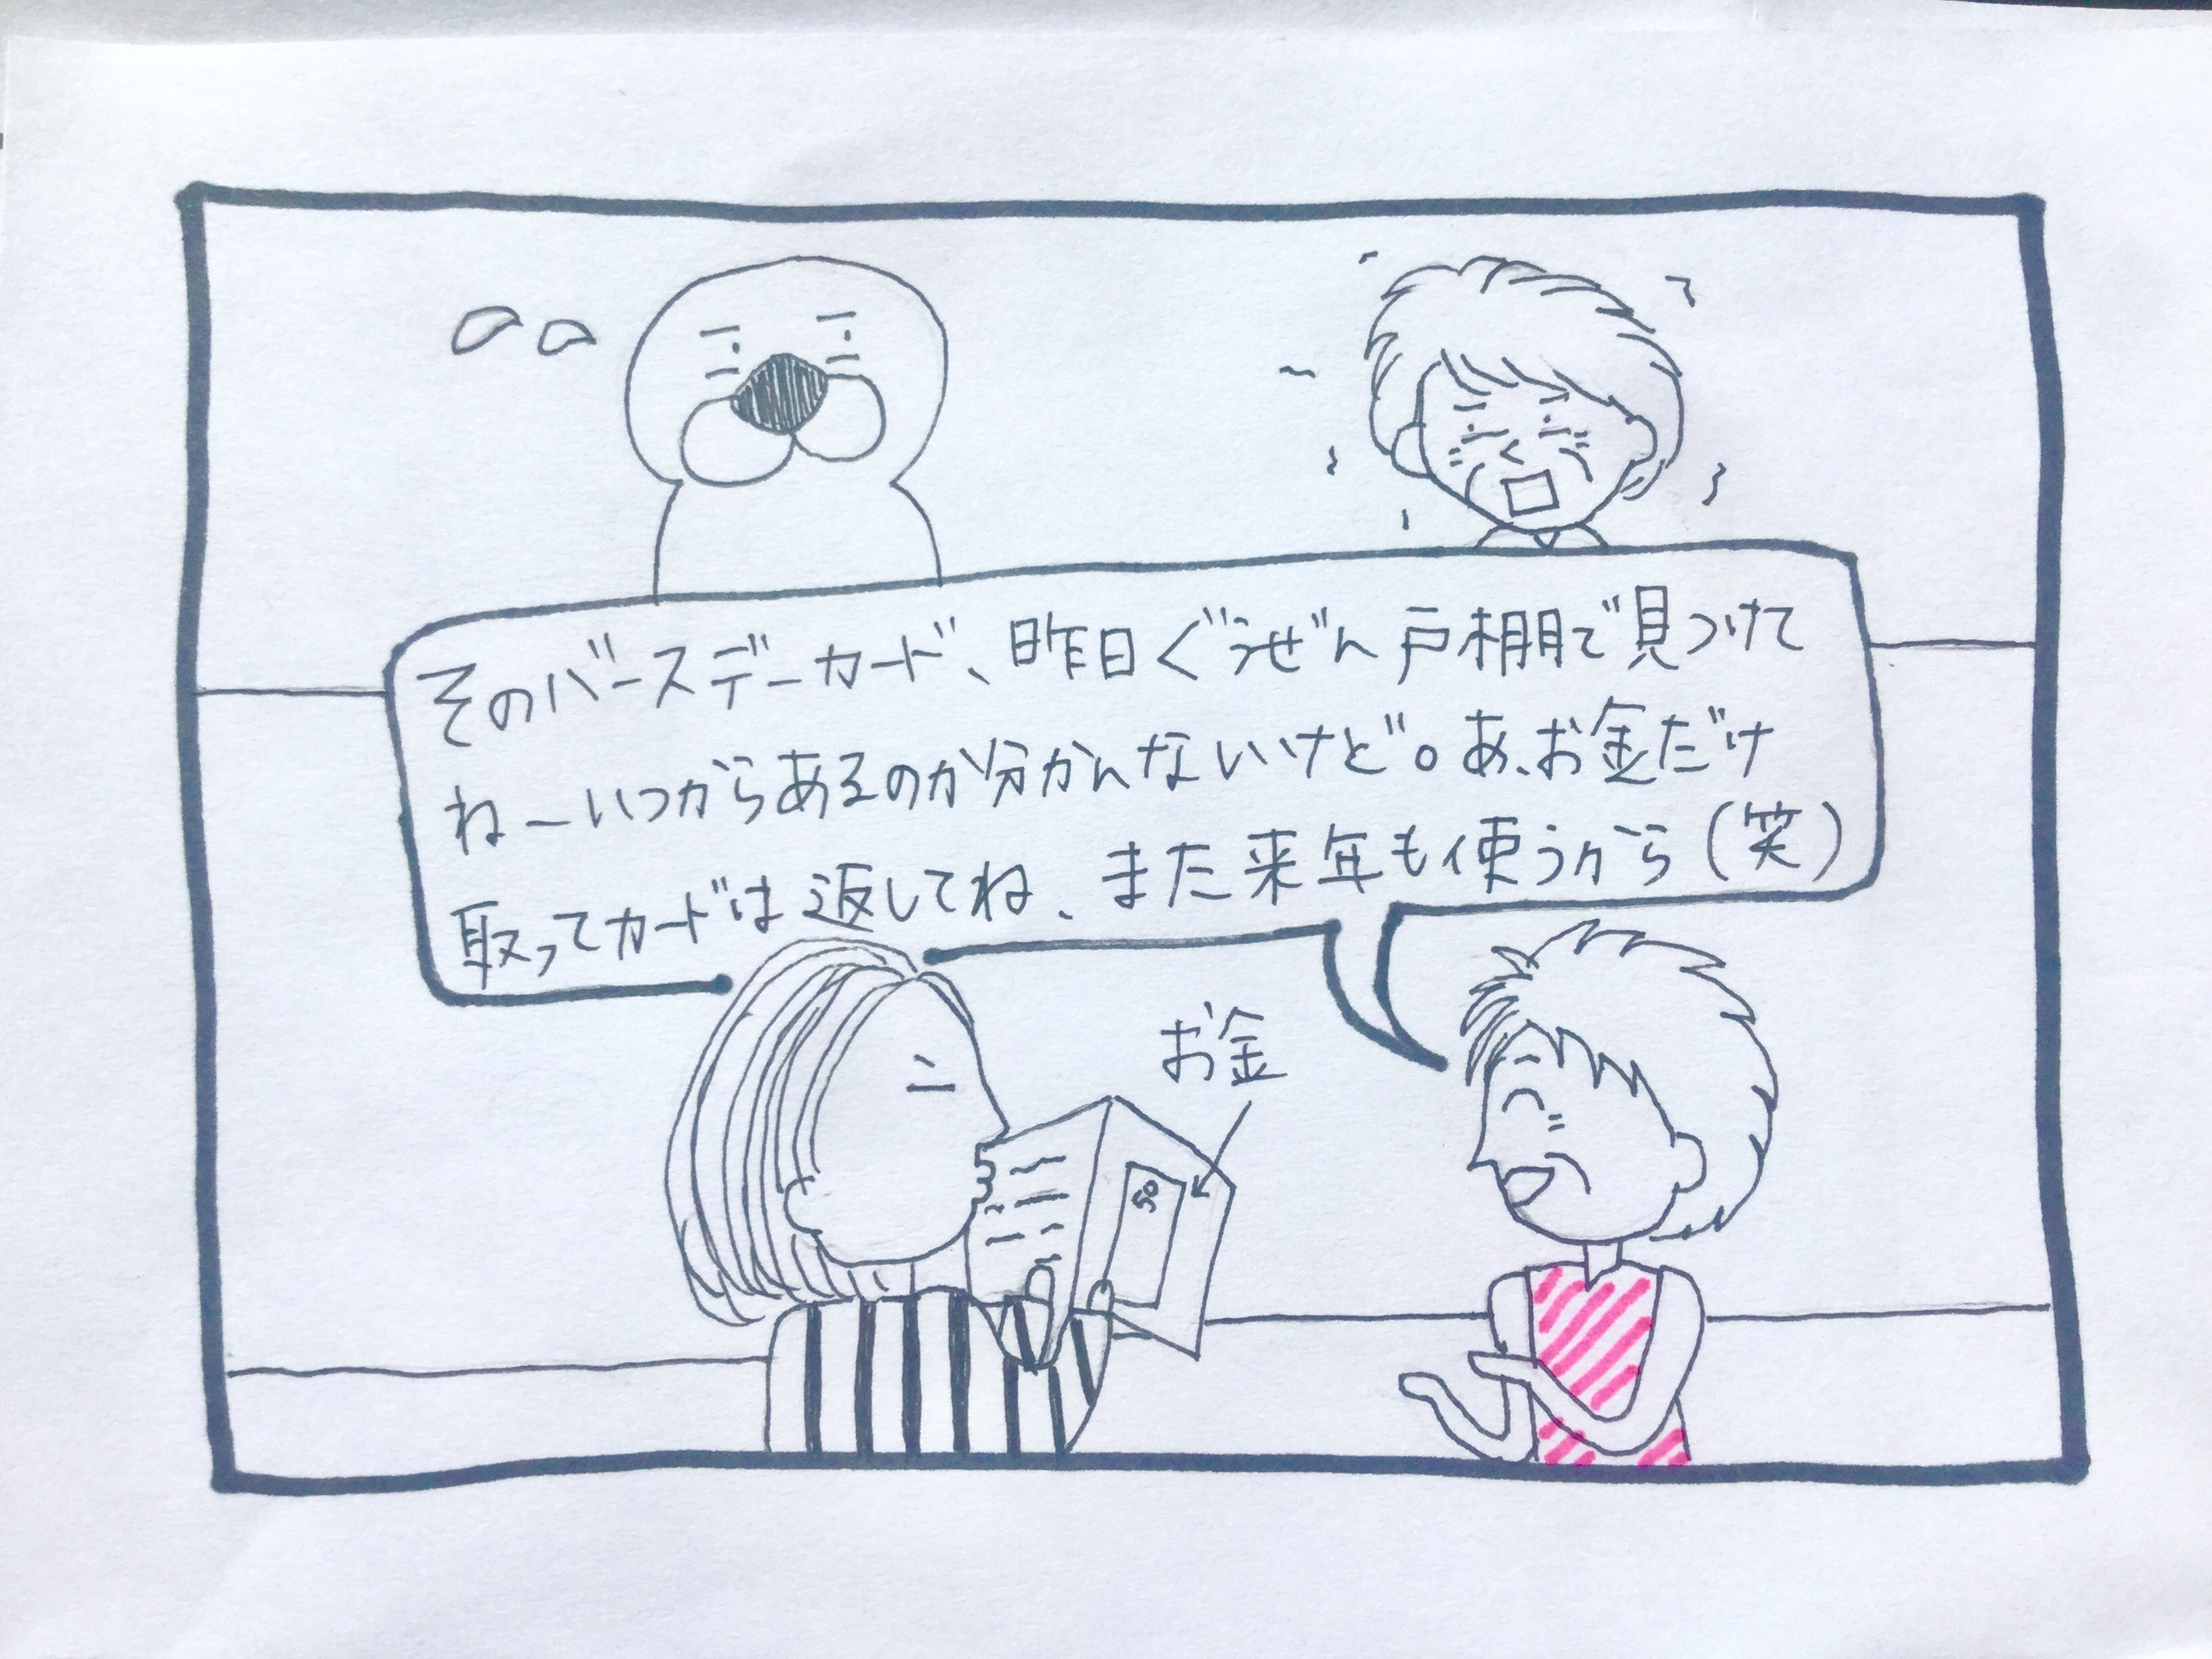 そのバースデーカード、昨日ぐうぜん戸棚で見つけて
ねーいつからあるのか分かんないけど。あ、お金だけ
取ってカードは返してね、また来年も使うから(笑)
お金
50